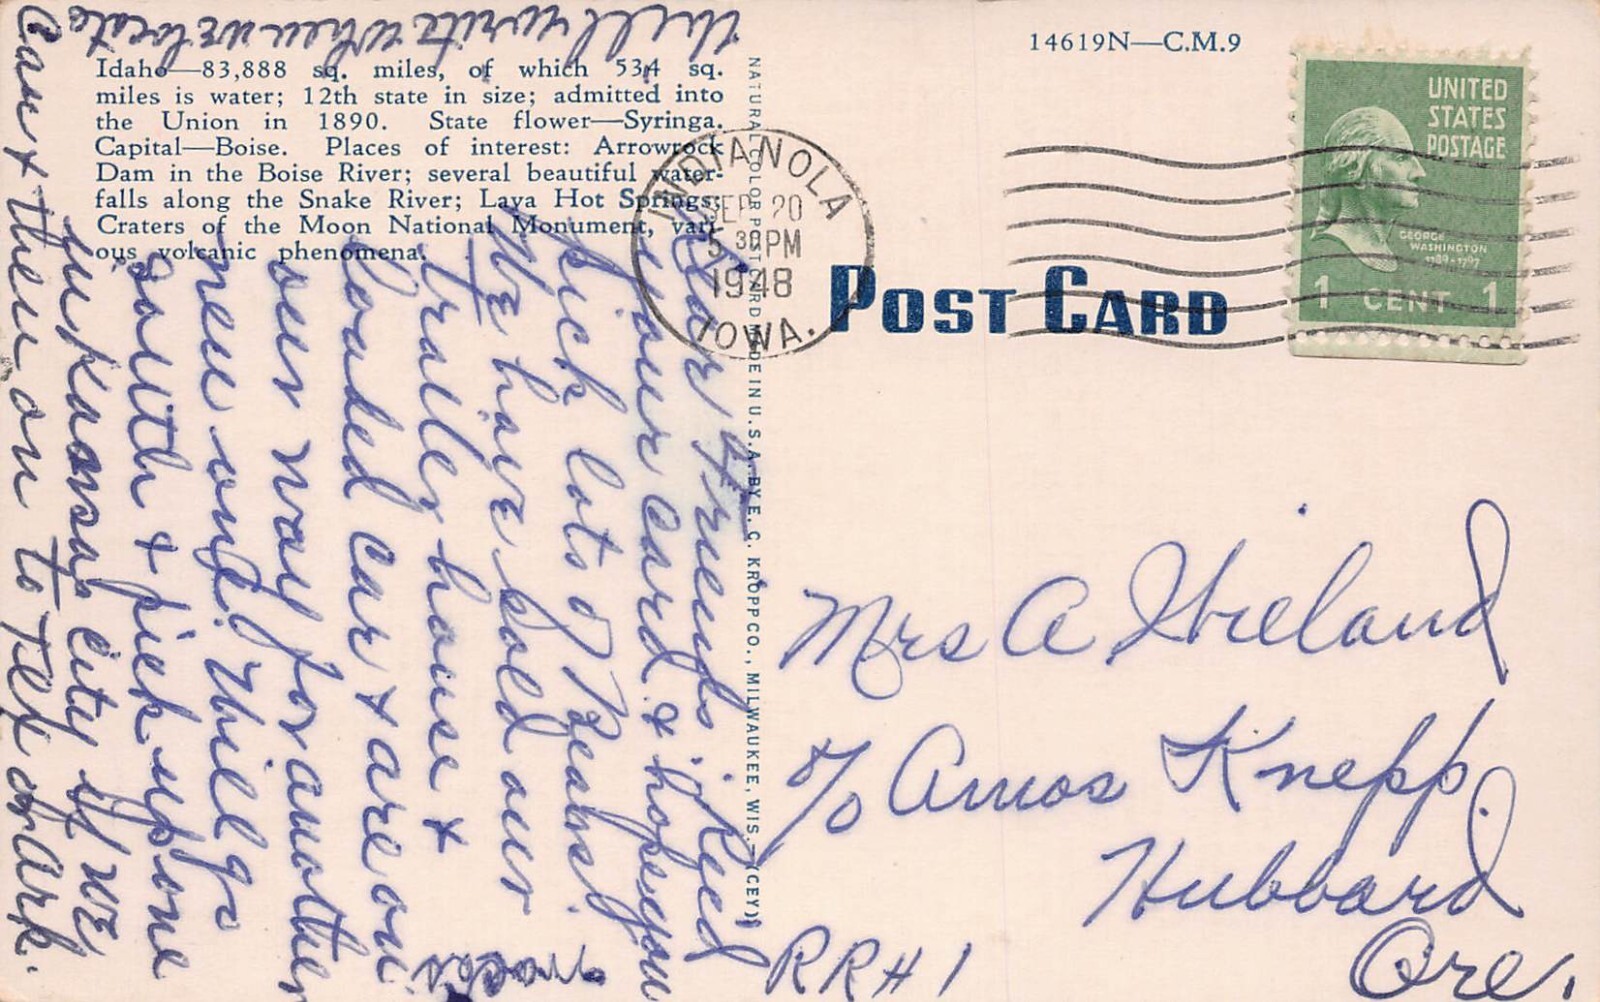 14619N—C.M.9
Idaho—83,888 sq. miles, of which 534 sq.
miles is water; 12th state in size; admitted into
the Union in 1890. State flower—Syringa.
Capital—Boise. Places of interest: Arrowrock
Dam in the Boise River; several beautiful water-
falls along the Snake River; Lava Hot Springs;
Craters of the Moon National Monument, vari-
ous volcanic phenomena.
NATURAL COLOR POST CARD MADE IN U.S.A. BY E. C. KROPP CO., MILWAUKEE, WIS.—(CEY)
INDIANOLA
SEP 20
5 30 PM
1948
IOWA.
UNITED
STATES
POSTAGE
GEORGE
WASHINGTON
1789-1797
1 CENT 1
POST CARD
Dear Friends, Rec'd
your card & hope you
pick lots of Beans.
We have sold our
trailer house &
loaded car & are on
our way for another
new one. Will go
south & pick up one
in Kansas City if we
can & then on to Tex or Ark.
Will write when we locate
Mrs A
c/o Amos Knepp.
Hubbard
Ore.
RR# 1